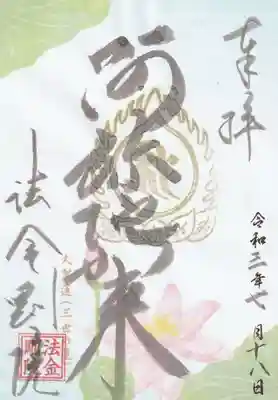 奉拝
令和三年七月十八日
阿弥陀如来
法金剛院
法金
剛院